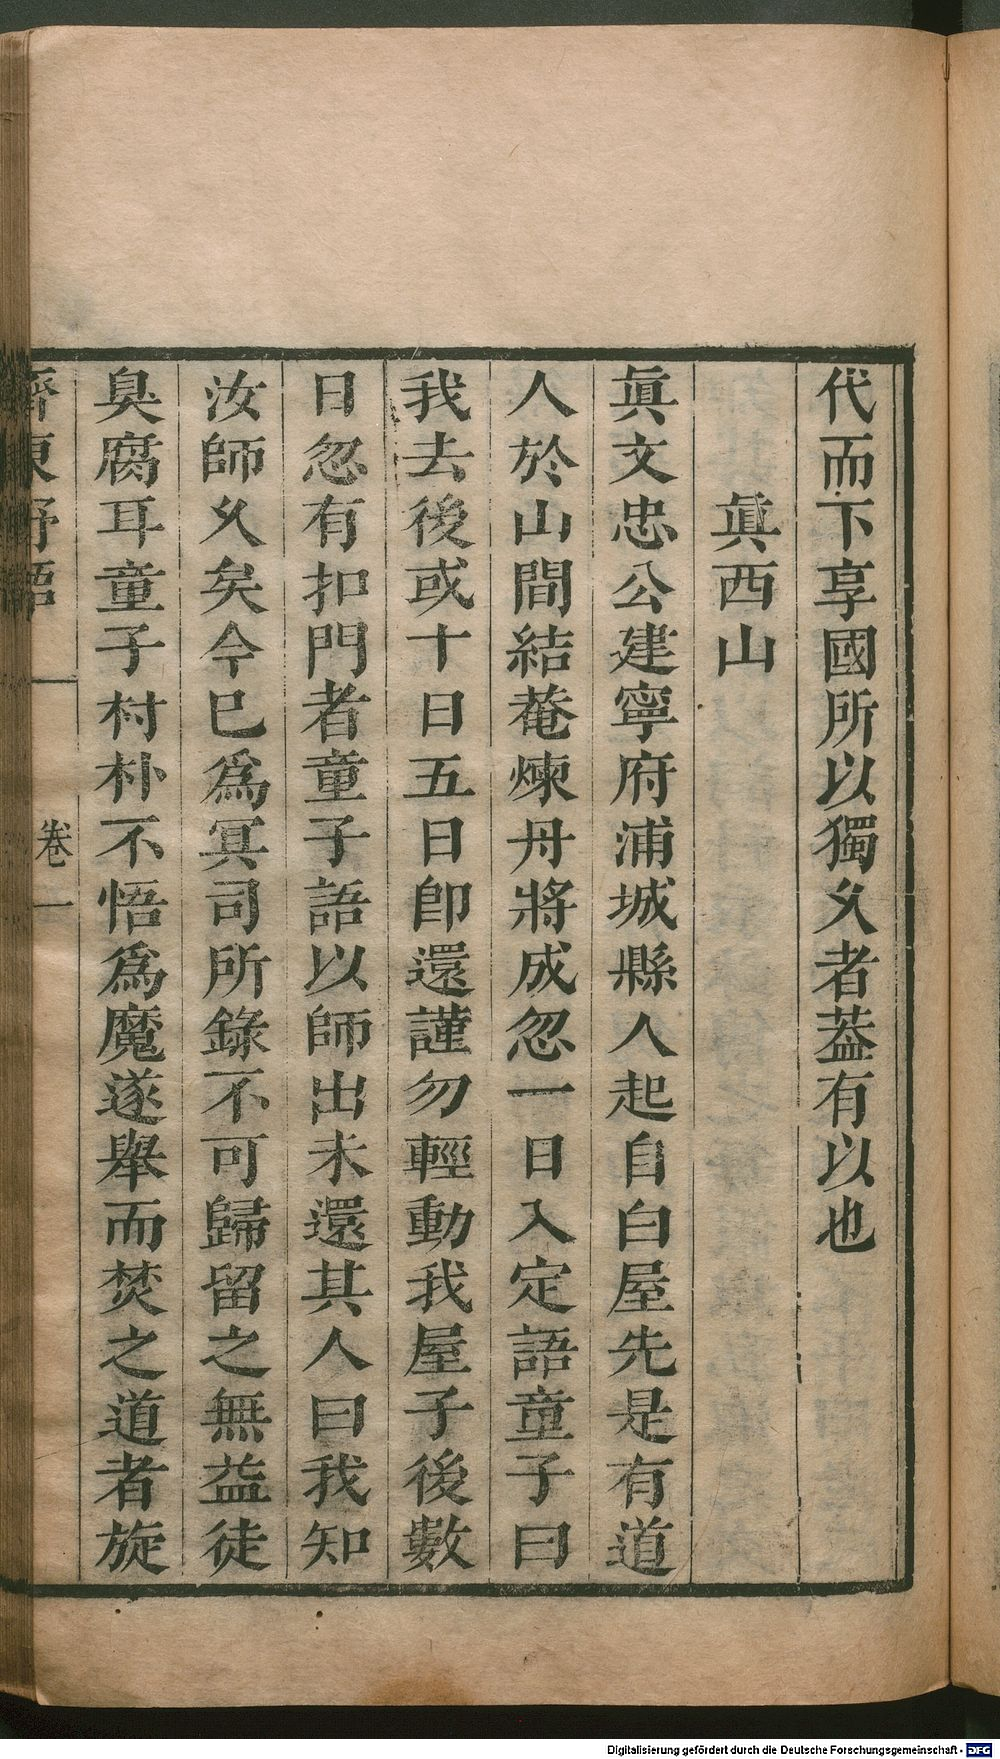 代而下享國所以獨久者葢有以也
眞西山
眞文忠公建寧府浦城縣人起自白屋先是有道
人於山間結菴煉丹將成忽一日入定語童子曰
我去後或十日五日卽還謹勿輕動我屋子後數
日忽有扣門者童子語以師出未還其人曰我知
汝師久矣今巳爲冥司所錄不可歸留之無益徒
臭腐耳童子村朴不悟爲魔遂舉而焚之道者旋
齊東野語 卷一
Digitalisierung gefördert durch die Deutsche Forschungsgemeinschaft - DFG